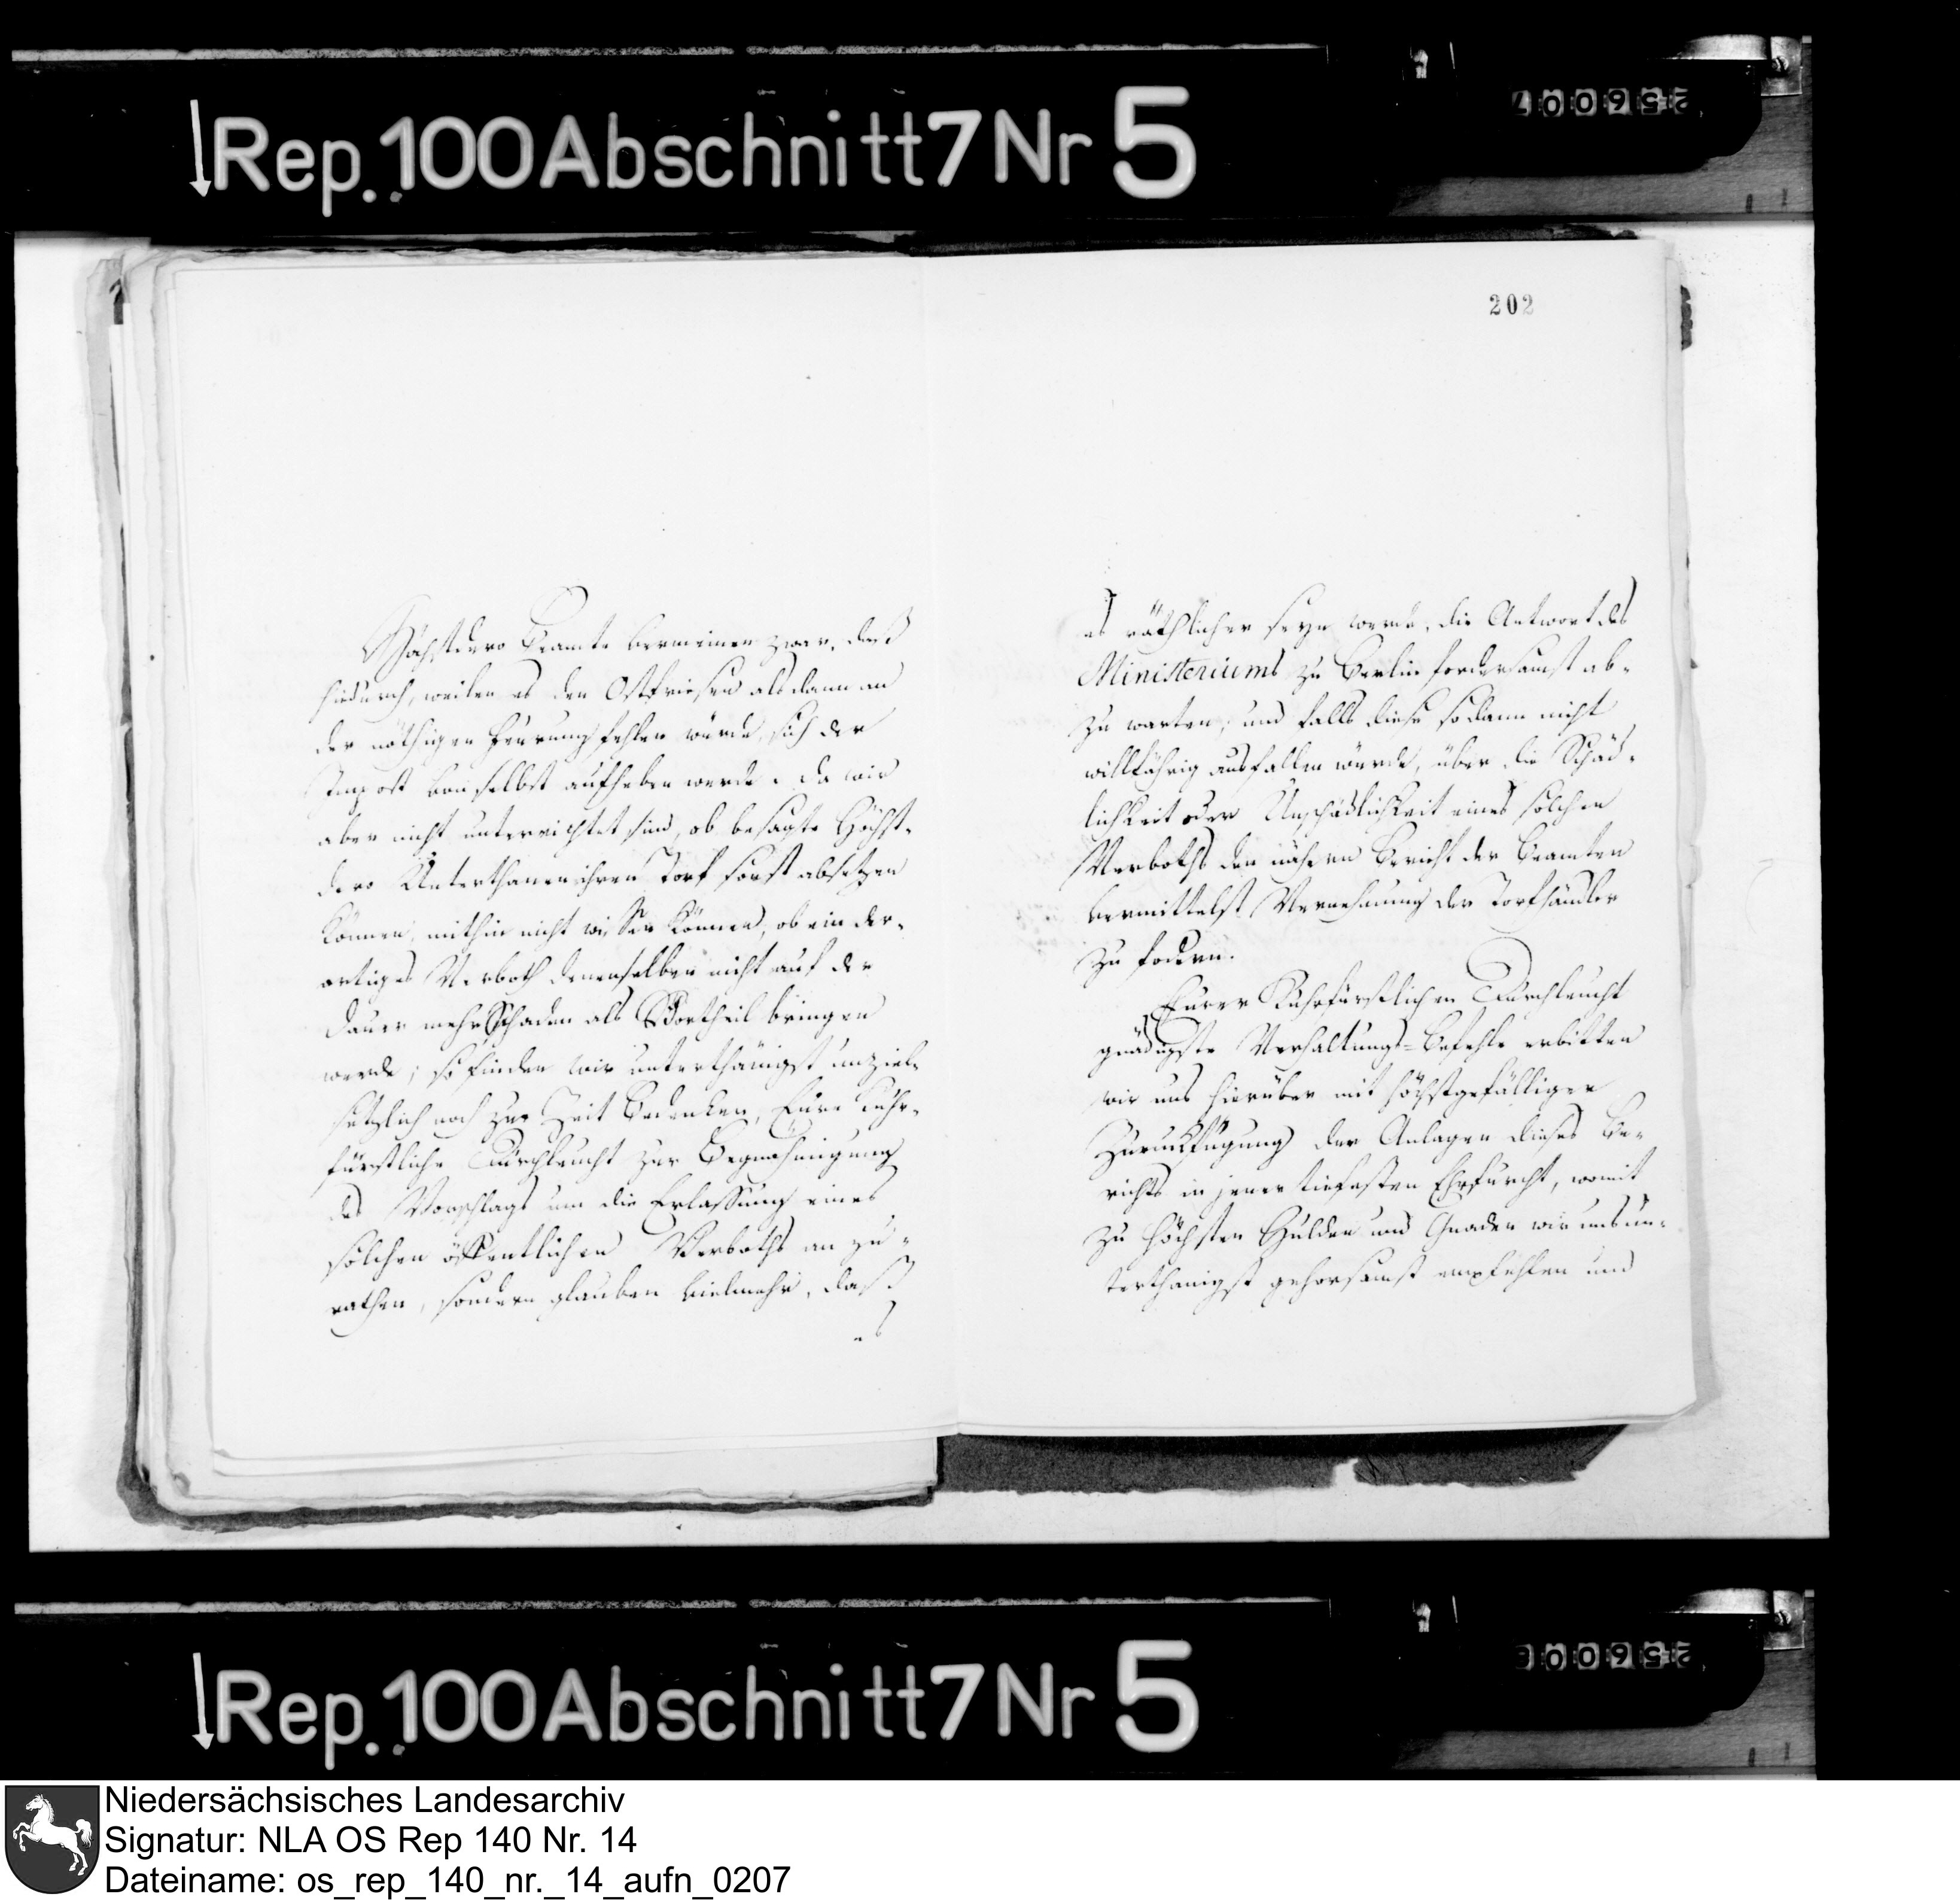 Rep. 100 Abschnitt 7 Nr 5
202
Höchstdero Beamte vermeinen zwar, daß
hiedurch, weilen es den Ostfriesen alsdann an
der nöthigen Feurung fehlen würde, sich der
Impost von selbst aufheben werde. da wir
aber nicht unterrichtet sind, ob besagte Höchst-
dero Unterthanen ihren Torf sonst absetzen
können, mithin nicht wissen können, ob ein der-
artiges Verboth denenselben nicht auf der
Dauer mehr Schaden als Vortheil bringen
werde; so finden wir unterthänigst unziel-
setzlich noch zur Zeit Bedenken, Eure Kuhr-
fürstliche Durchleucht zur Begnehmigung
des Vorschlags um die Erlassung eines
solchen öffentlichen Verboths an zu-
rathen, sondern glauben vielmehr, daß
es
es räthlicher seyn werde, die Antwort des
Ministeriums zu Berlin fordersamst ab-
zu warten, und falls diese sodann nicht
willfährig ausfallen würde, über die Schäd-
lichkeit oder Unschädlichkeit eines solchen
Verboths den nähern Bericht der Beamten
vermittelst Vernehmung der Torfhändler
zu fodern.
Eurer Kuhrfürstlichen Durchleucht
gnädigste Verhaltungs=Befehle erbitten
wir uns hierüber mit höchstgefälliger
Zurückfügung der Anlagen dieses Be-
richts in jener tiefesten Ehrfurcht, womit
zu höchsten Hulden und Gnaden wir uns un-
terthänigst gehorsamst empfehlen und
Rep. 100 Abschnitt 7 Nr 5
Niedersächsisches Landesarchiv
Signatur: NLA OS Rep 140 Nr. 14
Dateiname: os_rep_140_nr._14_aufn_0207